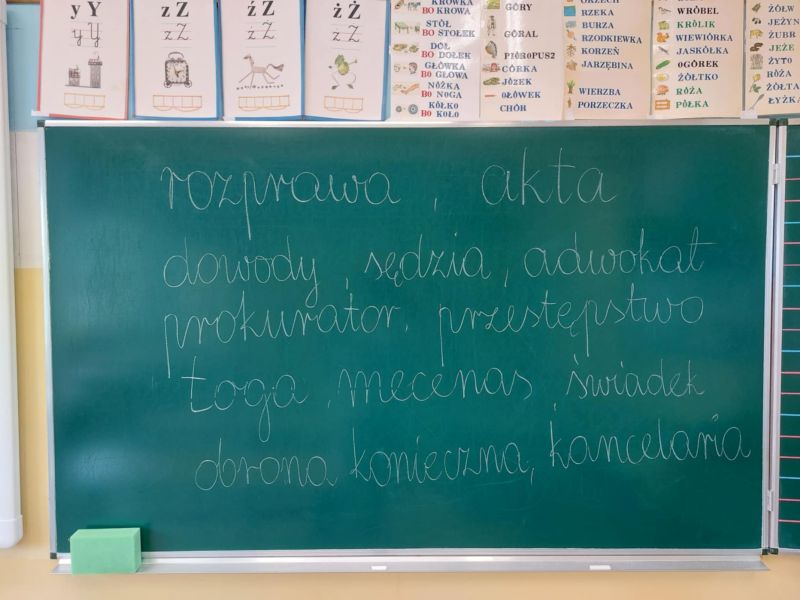 y Y
y Y
z Z
z Z
ź Ź
ź Ź
ż Ż
ż Ż
KRÓWKA
BO KROWA
STÓŁ
BO STOŁEK
DÓŁ
BO DOŁEK
GŁÓWKA
BO GŁOWA
NÓŻKA
BO NOGA
KÓŁKO
BO KOŁO
GÓRY
GÓRAL
PIÓROPUSZ
CÓRKA
JÓZEK
OŁÓWEK
CHÓR
ORZECH
RZEKA
BURZA
RZODKIEWKA
KORZEŃ
JARZĘBINA
WIERZBA
PORZECZKA
WRÓBEL
KRÓLIK
WIEWIÓRKA
JASKÓŁKA
OGÓREK
ŻÓŁTKO
RÓŻA
PÓŁKA
ŻÓŁW
ŻUBR
JEŻE
ŻYTO
RÓŻA
rozprawa, akta
dowody, sędzia, adwokat
prokurator, przestępstwo
toga, mecenas, świadek
obrona konieczna, kancelaria